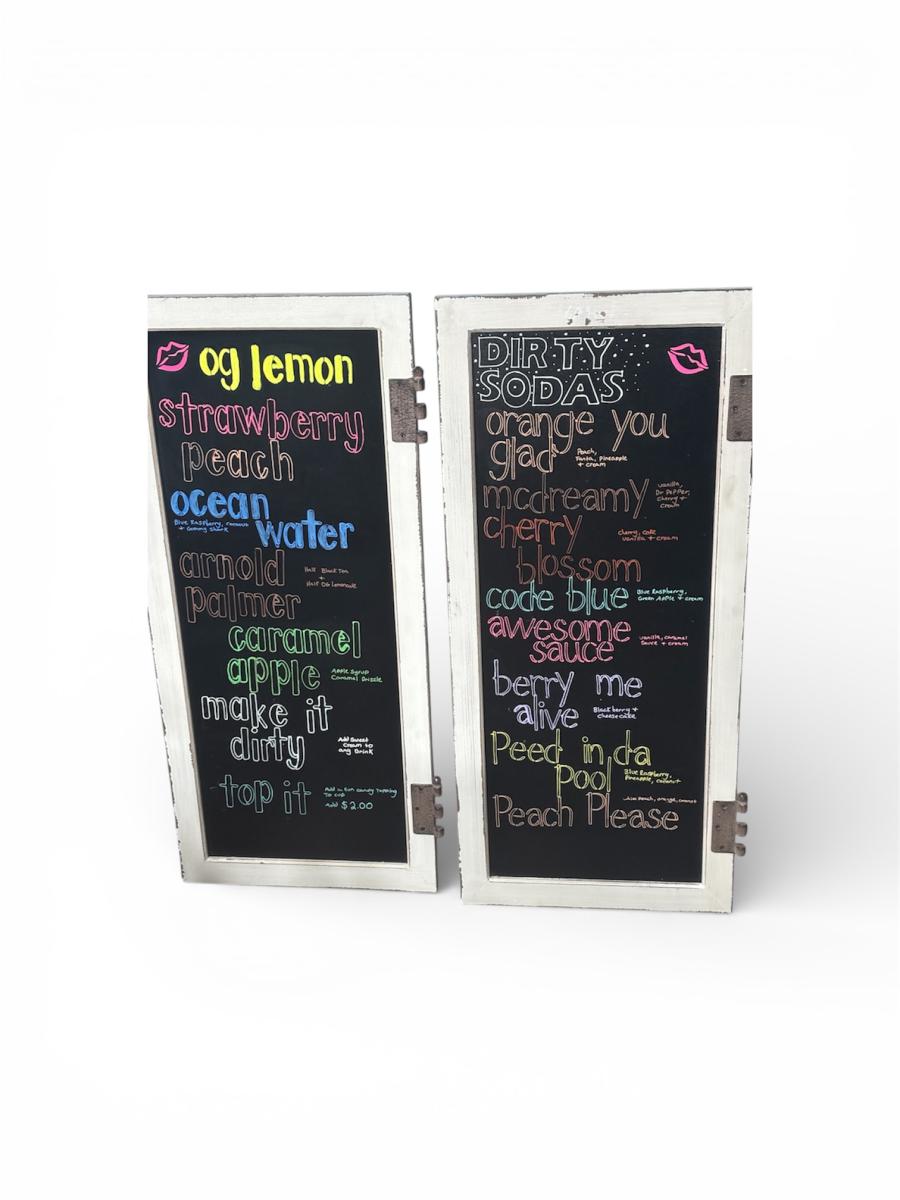 og lemon
strawberry
peach
ocean
Blue Raspberry, coconut
+ Gummy Shark
water
arnold
Half Black Tea
+
Half OG Lemonade
palmer
caramel
apple
Apple Syrup
Caramel Drizzle
make it
dirty
Add Sweet
Cream to
any Drink
top it
Add a fun candy topping
To cup
Add $2.00
DIRTY
SODAS
orange you
glad
Peach,
Fanta, pineapple
+ cream
mcdreamy
vanilla,
Dr PePPer,
Cherry +
cream
cherry
cherry, coke
vanilla + cream
blossom
code blue
Blue Raspberry,
Green Apple + cream
awesome
sauce
vanilla, caramel
Sauce + cream
berry me
alive
Blackberry +
cheesecake
Peed in da
Pool
Blue Raspberry,
Pineapple, coconut
peach, orange, coconut
Peach Please